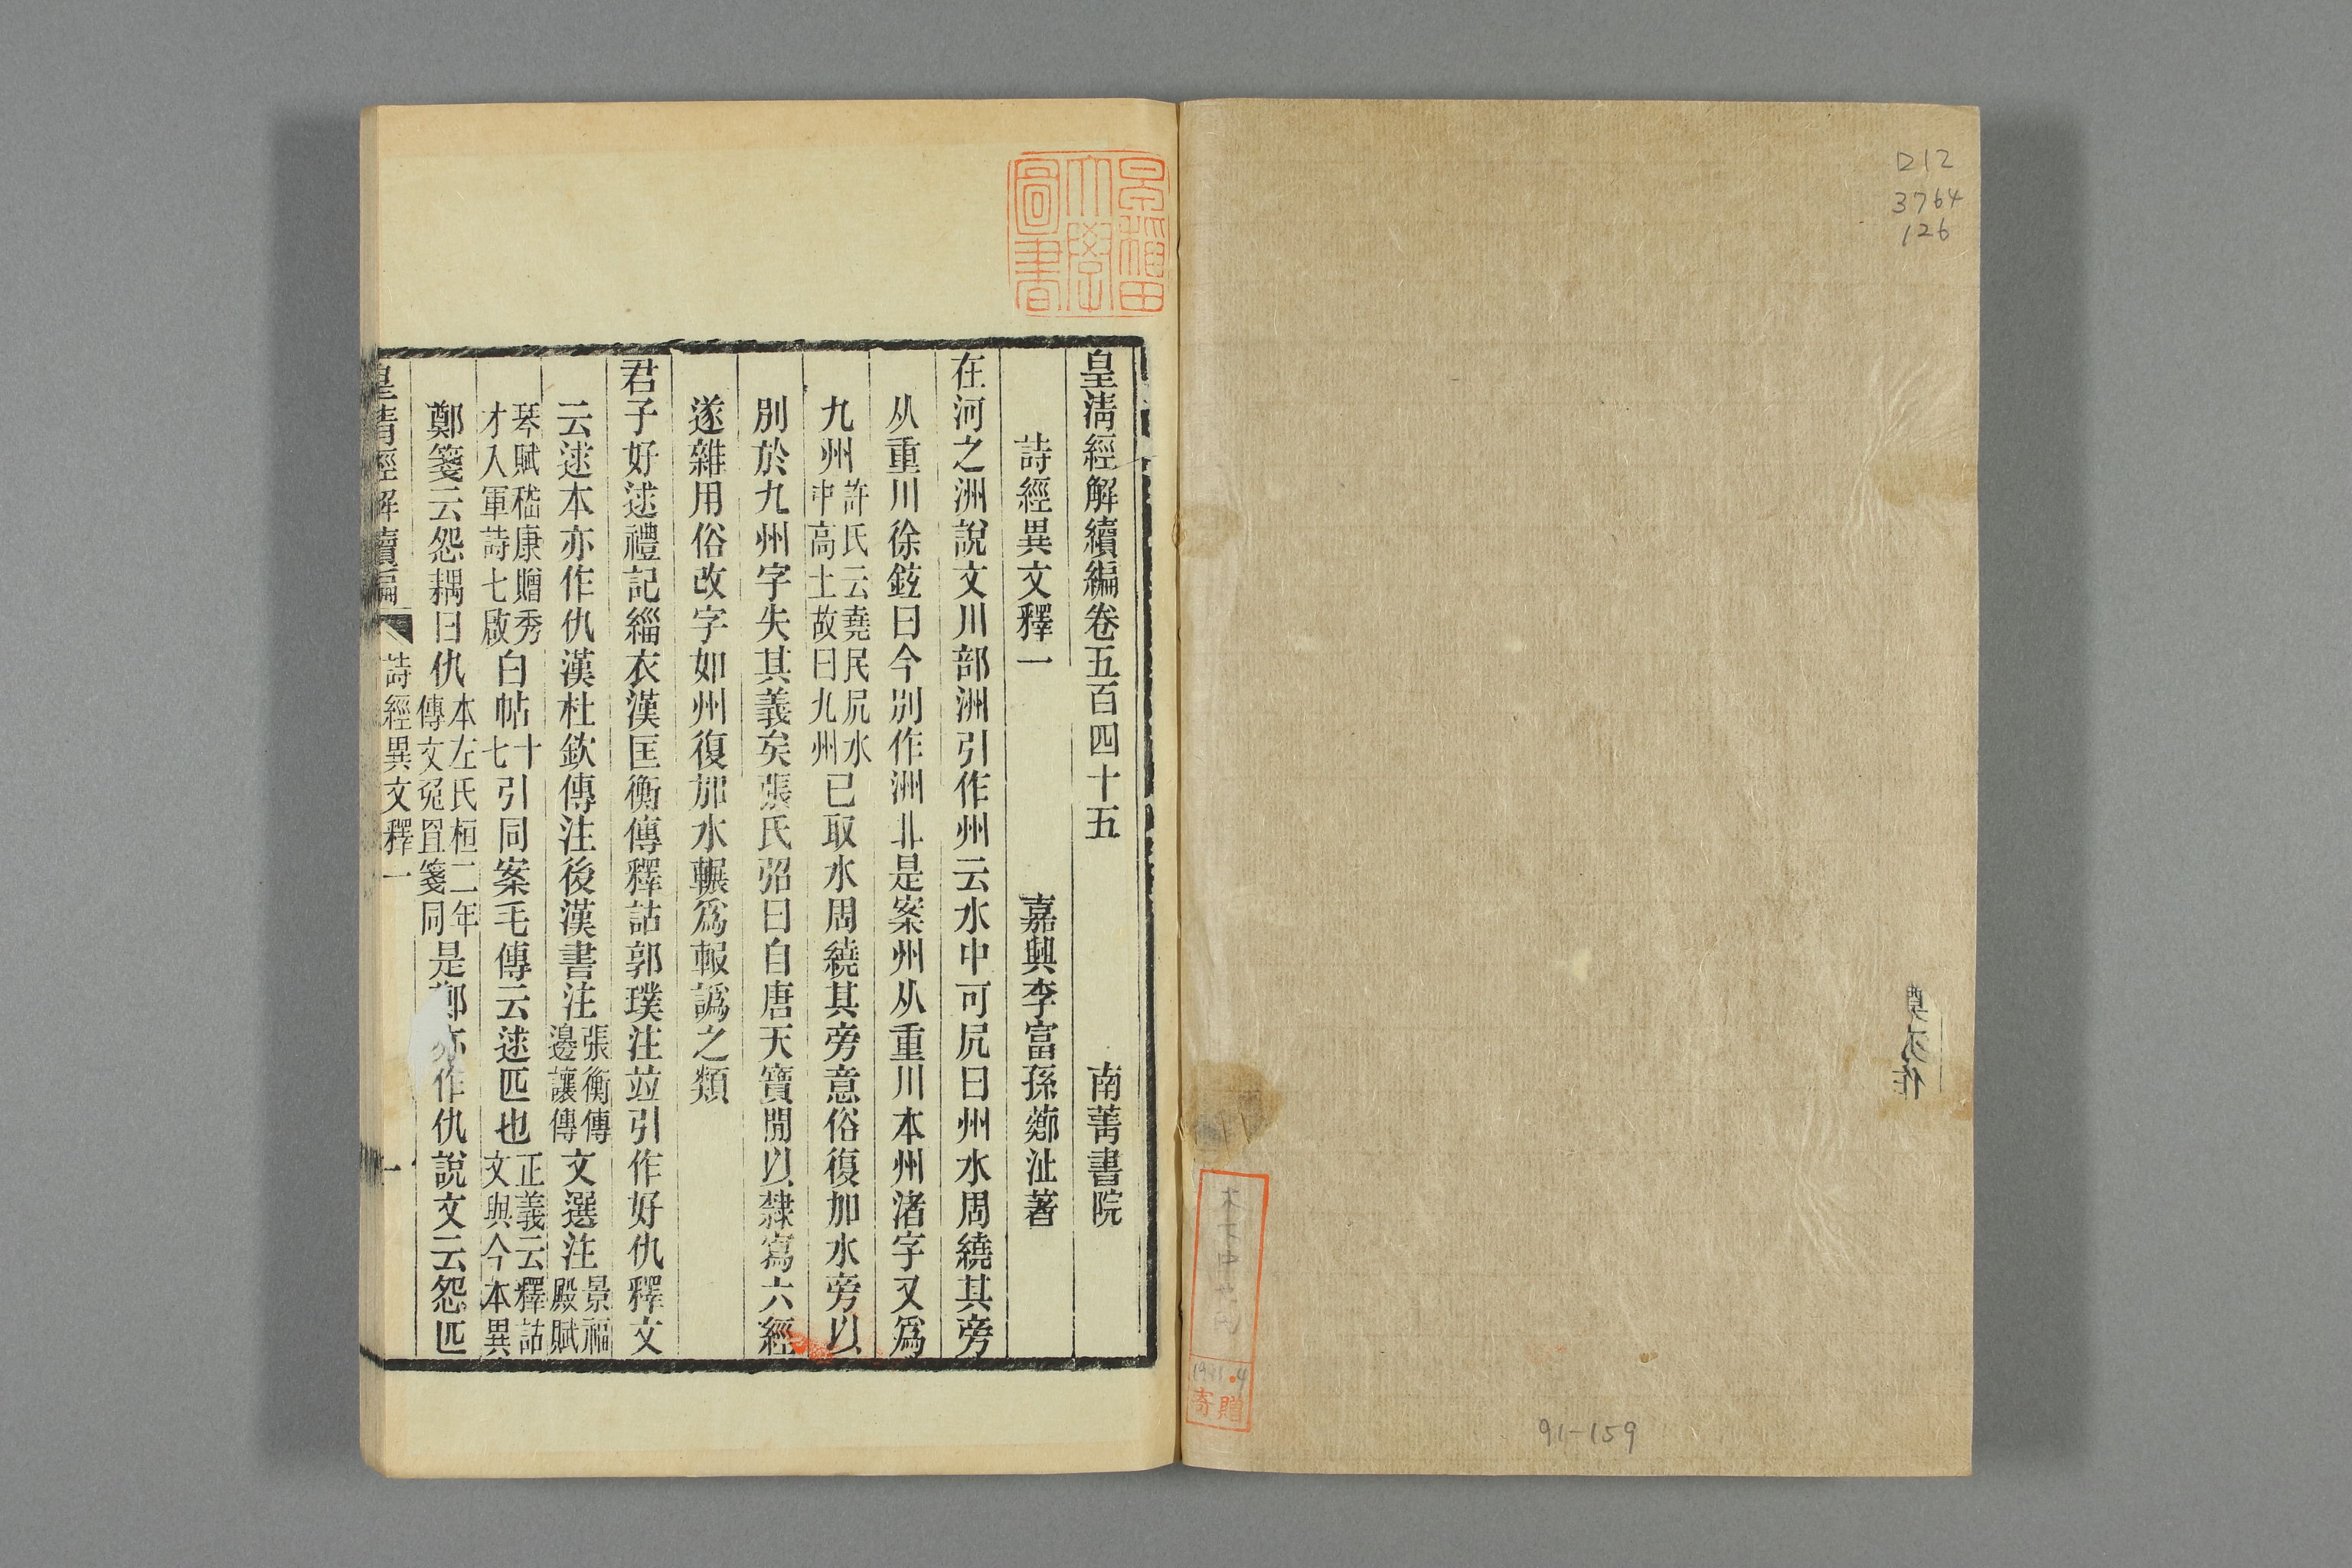 ロ12
3764
126
91-159
寄贈
早稲田
大學
圖書
皇清經解續編卷五百四十五 南菁書院
詩經異文釋一 嘉興李富孫薌沚著
在河之洲說文川部洲引作州云水中可凥曰州水周繞其旁
从重川徐鉉曰今別作洲非是案州从重川本州渚字又爲
九州許氏云堯民凥水中高土故曰九州已取水周繞其旁意俗復加水旁以
別於九州字失其義矣張氏弨曰自唐天寶閒以隸寫六經
遂雜用俗改字如州復加水輾爲報譌之類
君子好逑禮記緇衣漢匡衡傳釋詁郭璞注竝引作好仇釋文
云逑本亦作仇漢杜欽傳注後漢書注張衡傳邊讓傳文選注景福殿賦
琴賦嵇康贈秀才入軍詩七啟白帖十七引同案毛傳云逑匹也正義云釋詁文與今本異
鄭箋云怨耦曰仇本左氏桓二年傳文兔罝箋同是鄭亦作仇說文云怨匹
皇清經解續編 詩經異文釋一 一